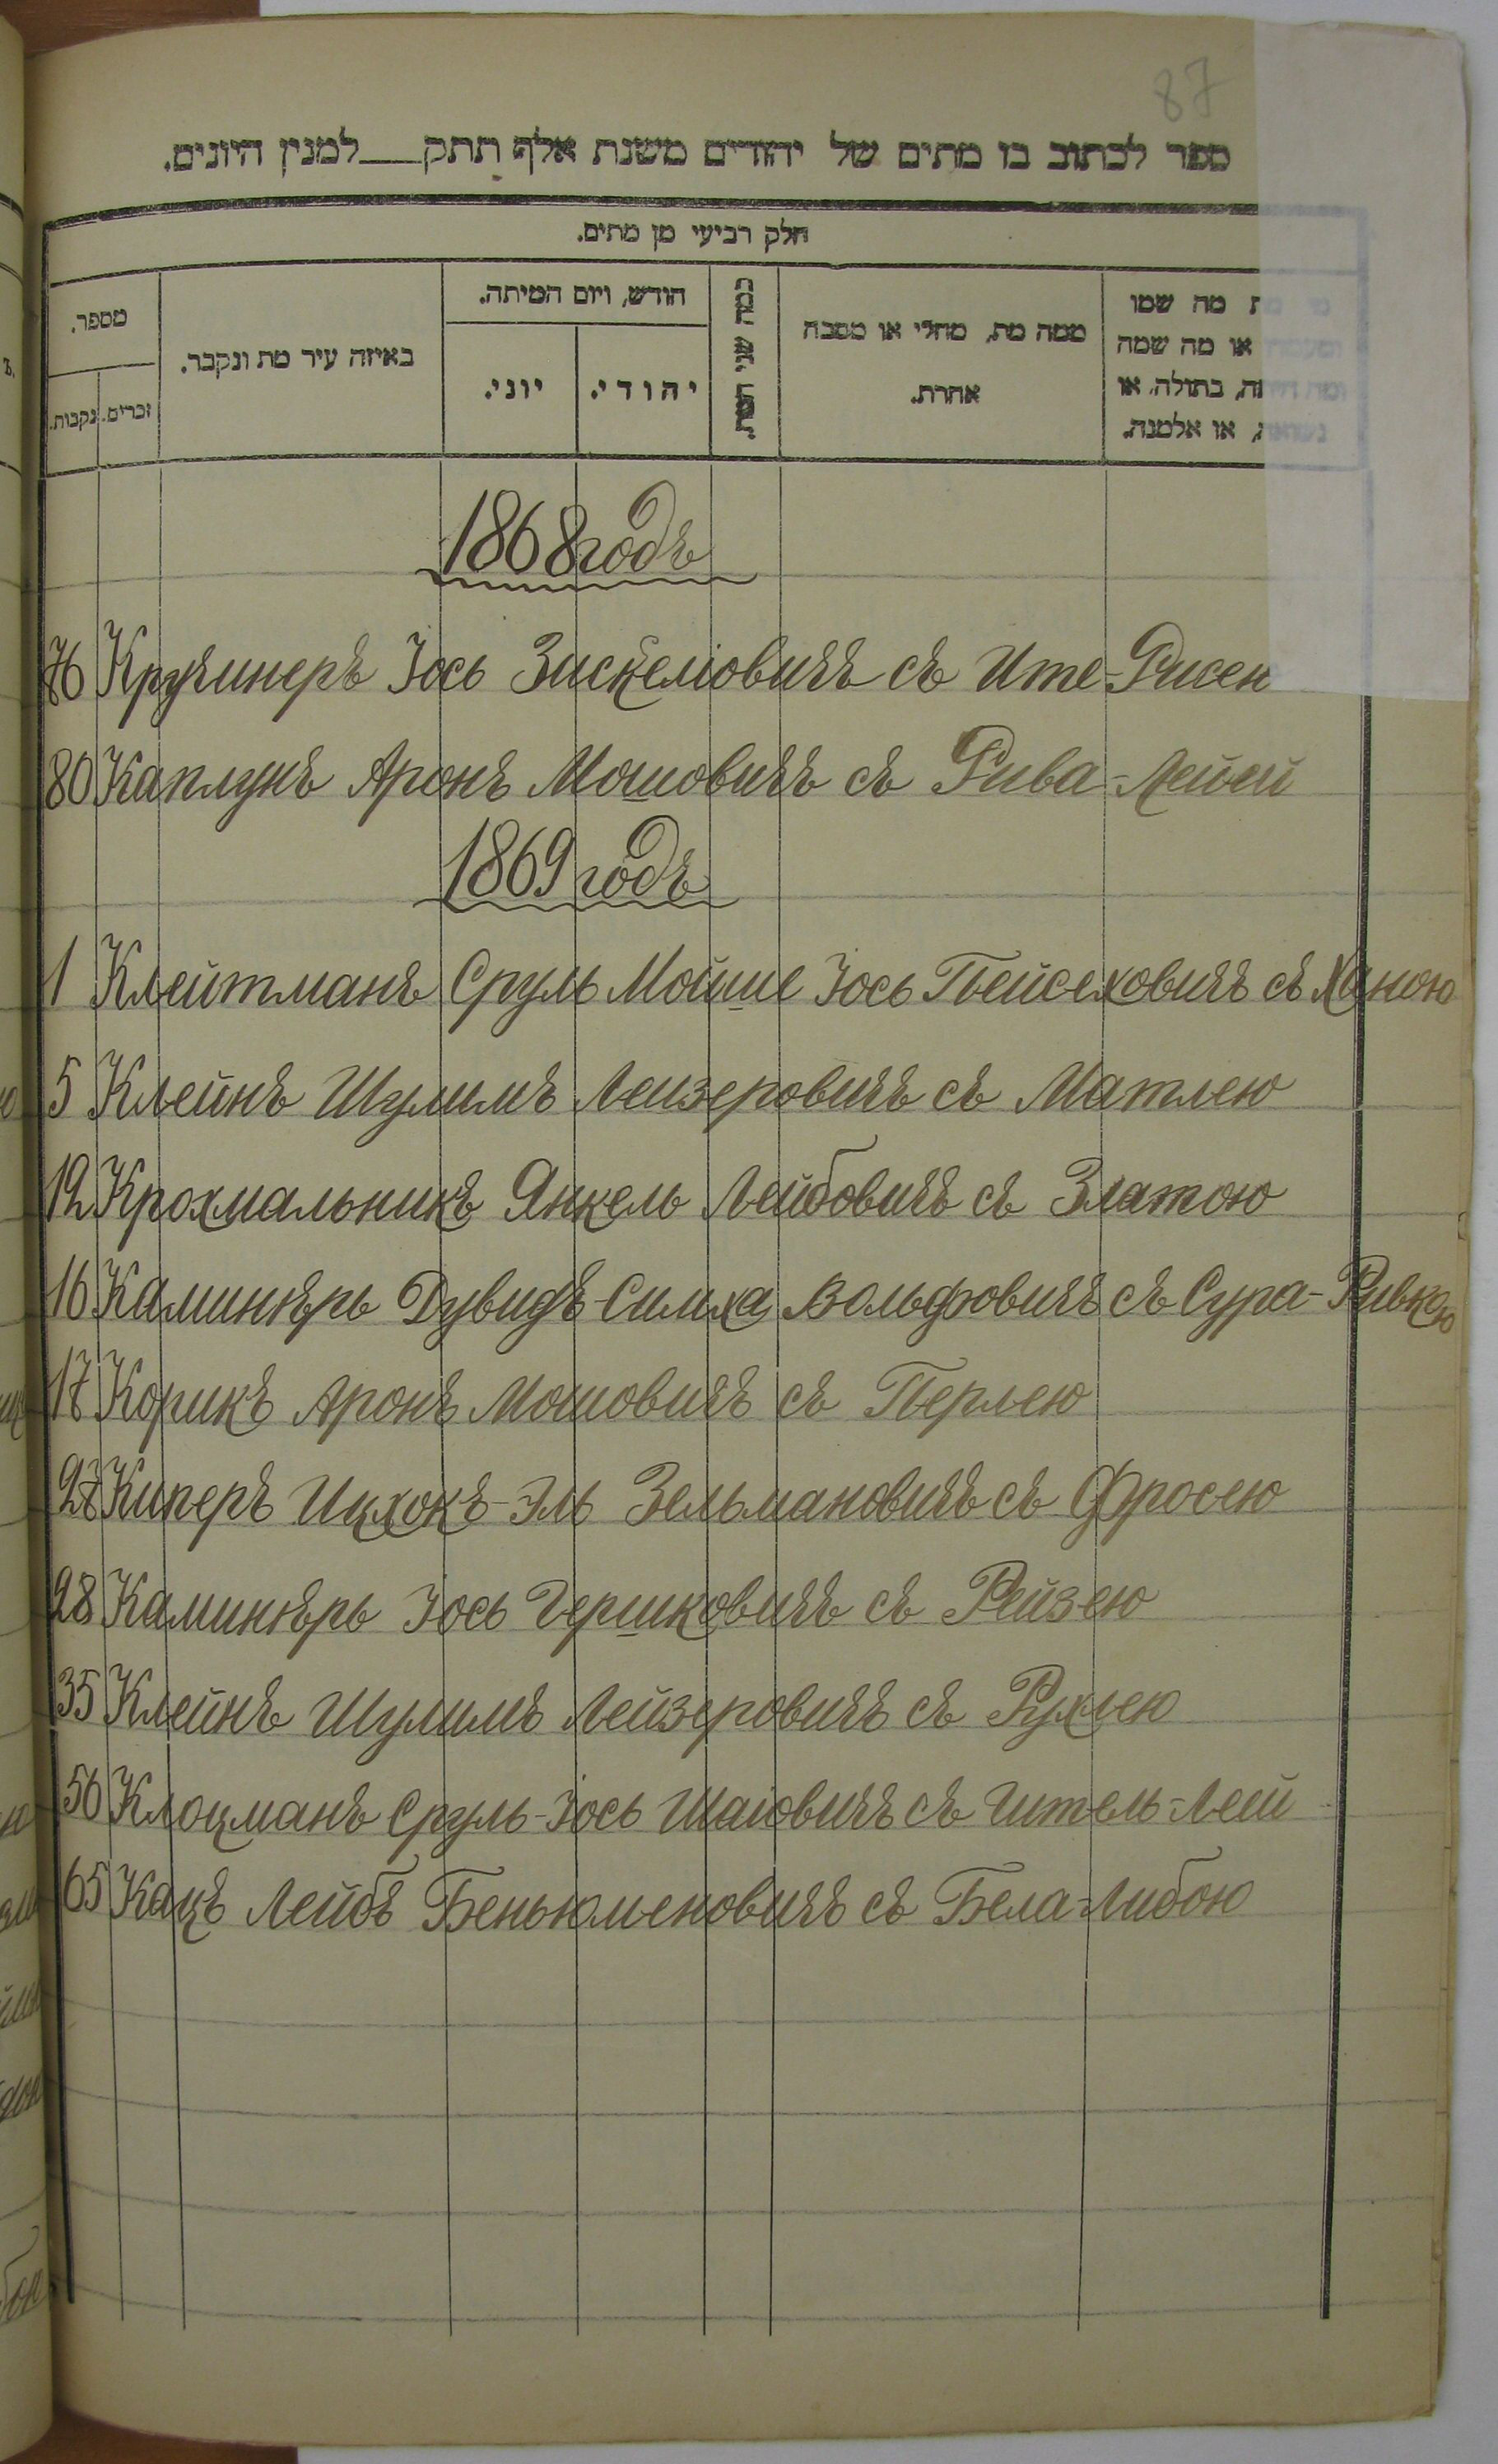 87
ספר לכתוב בו מתים של יהודים משנת אלף תתק למנין היונים.
חלק רביעי מן מתים.
מספר.
זכרים.
נקבות.
באיזה עיר מת ונקבר.
חודש, ויום המיתה.
יהודי.
יוני.
כמה שני המת.
ממה מת, מחלי או מסבה
אחרת.
מי מת מה שמו
או מה שמה
בתולה, או
נשואה, או אלמנה.
1868 годъ
76 Кручинеръ Іось Зискеліовичъ съ Ите-Рисен
80 Каплунъ Аронъ Мошовичъ съ Рива-Лейей
1869 годъ
1 Клейтманъ Сруль Мойше Іось Пейсеховичъ съ Ханою
5 Клейнъ Шулимъ Лейзеровичъ съ Матлею
12 Крохмальникъ Янкель Лейбовичъ съ Златою
16 Каминяръ Дувидъ-Симха Вольфовичъ съ Сура-Ривкою
17 Корикъ Аронъ Мошовичъ съ Перлею
27 Киперъ Ицхокъ-Эль Зельмановичъ съ Фросею
28 Каминяръ Іось Гершковичъ съ Рейзею
35 Клейнъ Шулимъ Лейзеровичъ съ Рухлею
56 Клоцманъ Сруль-Іось Шаіовичъ съ Ител-Леей
65 Кацъ Лейбъ Беньюменовичъ съ Бела-Либою